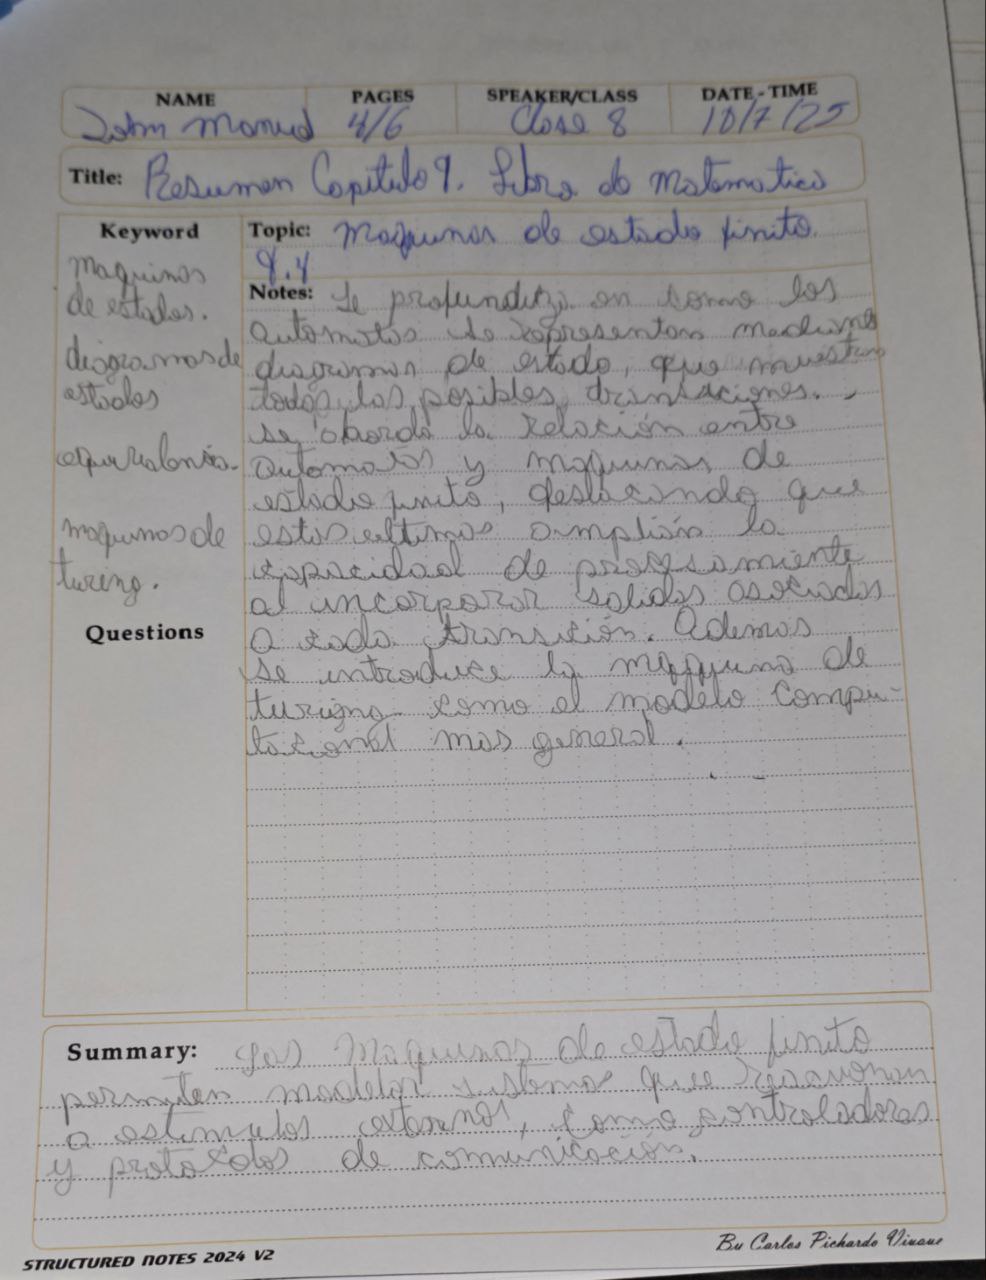 NAME PAGES SPEAKER/CLASS DATE-TIME
John Manuel 4/6 Clase 8 10/7/25
Title: Resumen Capitulo 9. Libro de Matematica
Keyword
Maquinas
de estados.
diagramas de
estados
equivalencia.
maquinas de
turing.
Questions
Topic: Maquinas de estado finito.
9.4
Notes: Se profundiza en como los
automatas se representan mediante
diagramas de estado, que muestran
todas las posibles transiciones.
se aborda la relación entre
automatas y maquinas de
estado finito, destacando que
estas ultimas amplian la
capacidad de procesamiento
al incorporar salidas asociadas
a cada transición. Ademas
se introduce la maquina de
turing como el modelo compu-
tacional mas general.
Summary: Las Maquinas de estado finito
permiten modelar sistemas que reaccionan
a estimulos externos, como controladores
y protocolos de comunicación.
STRUCTURED NOTES 2024 V2
By Carlos Pichardo Viuque